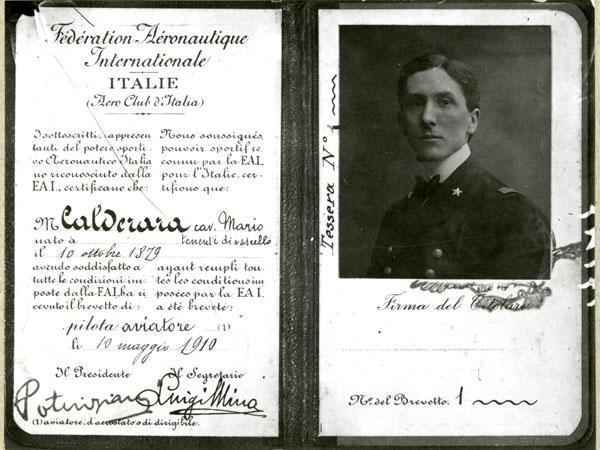 Fédération Aéronautique
Internationale
ITALIE
(Aero Club d'Italia)
I sottoscritti, rappresen
tanti del potere sporti-
vo Aeronautico Italia
no riconosciuto dalla
F.A.I., certificano che:
Nous soussignés,
pouvoir sportif re
connu par la F.A.I.,
pour l'Italie, cer-
tifions que:
M Calderara cav. Mario
nato à tenente di vascello
il 10 ottobre 1879
avendo soddisfatto a
tutte le condizioni im
poste dalla F.A.I. ha ri
cevuto il brevetto di:
ayant rempli tou-
tes les conditions im
posées par la F.A.I.
a été breveté:
pilota aviatore (1)
li 10 maggio 1910
Il Presidente Il Segretario
Luigi Mina
(1) aviatore, d'aerostato o di dirigibile.
Tessera N° 1
Firma del Titolare
N.º del Brevetto. 1